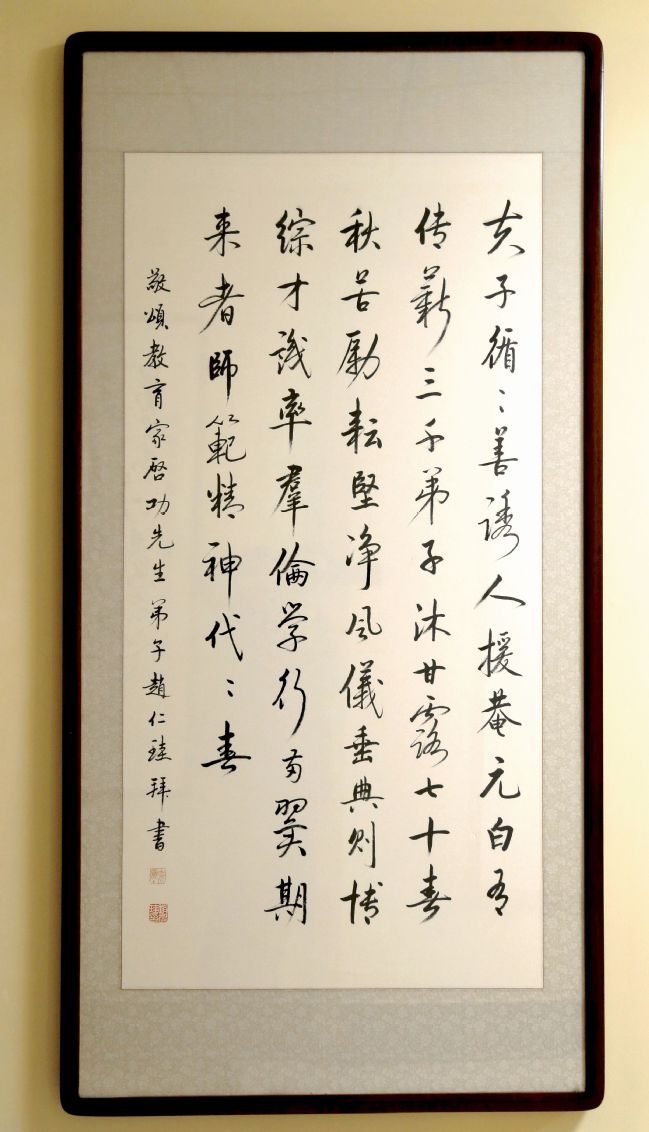 夫子循〻善誘人援菴元白有
传薪三千弟子沐甘露七十春
秋苦勵耘堅净风儀垂典则博
綜才識率羣倫学行両翼期
来者師範精神代〻春
敬頌教育家啓功先生 弟子趙仁珪拜書